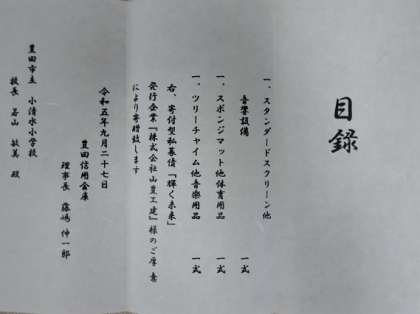 目録
一、スタンダードスクリーン他
音響設備 一式
一、スポンジマット他体育用品 一式
一、ツリーチャイム他音楽用品 一式
右、寄付型私募債「輝く未来」
発行企業『株式会社山豊工建』様のご厚意
により寄贈致します
令和五年九月二十七日
豊田信用金庫
理事長 藤嶋伸一郎
豊田市立 小清水小学校
校長 畠山 敏篤 殿